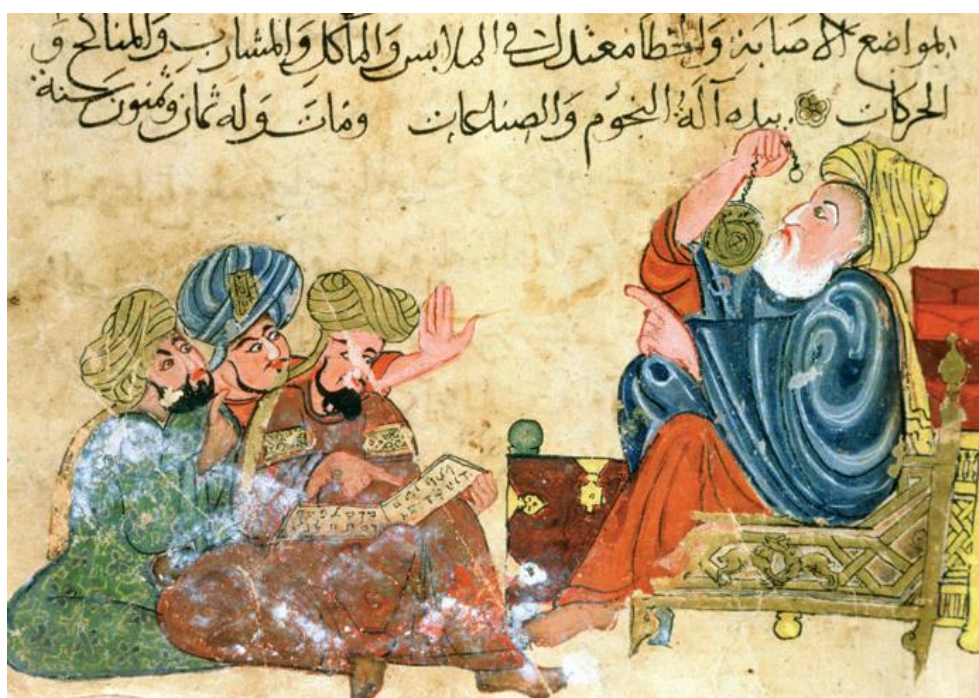 المواضع الاصابة والخطأ معتدلا في الملابس والمآكل والمشارب والمناكح و
الحركات بيده آلة النجوم والصناعات ومات وله ثمان وثمنون سنة